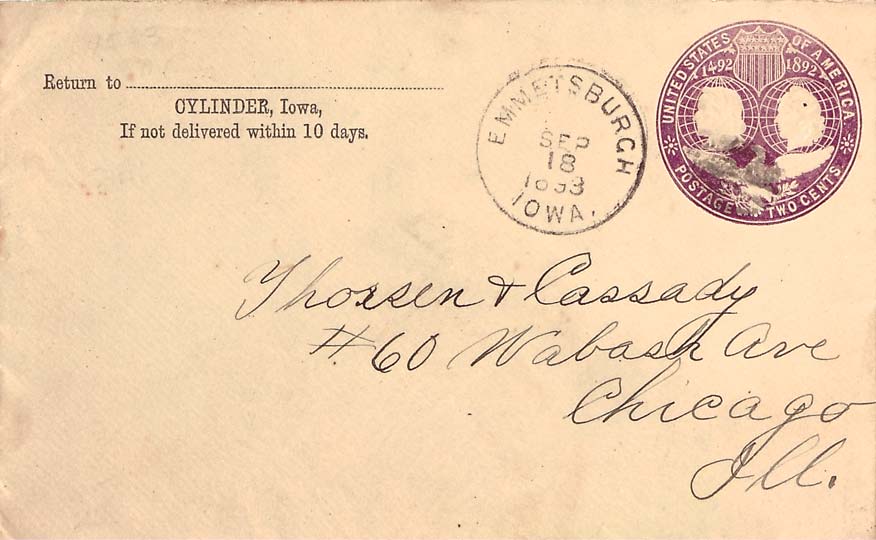 Return to
CYLINDER, Iowa,
If not delivered within 10 days.
EMMETSBURGH
SEP
18
1893
IOWA.
UNITED STATES OF AMERICA
1492 1892
POSTAGE TWO CENTS
Thorsen & Cassady
#60 Wabash Ave
Chicago
Ill.